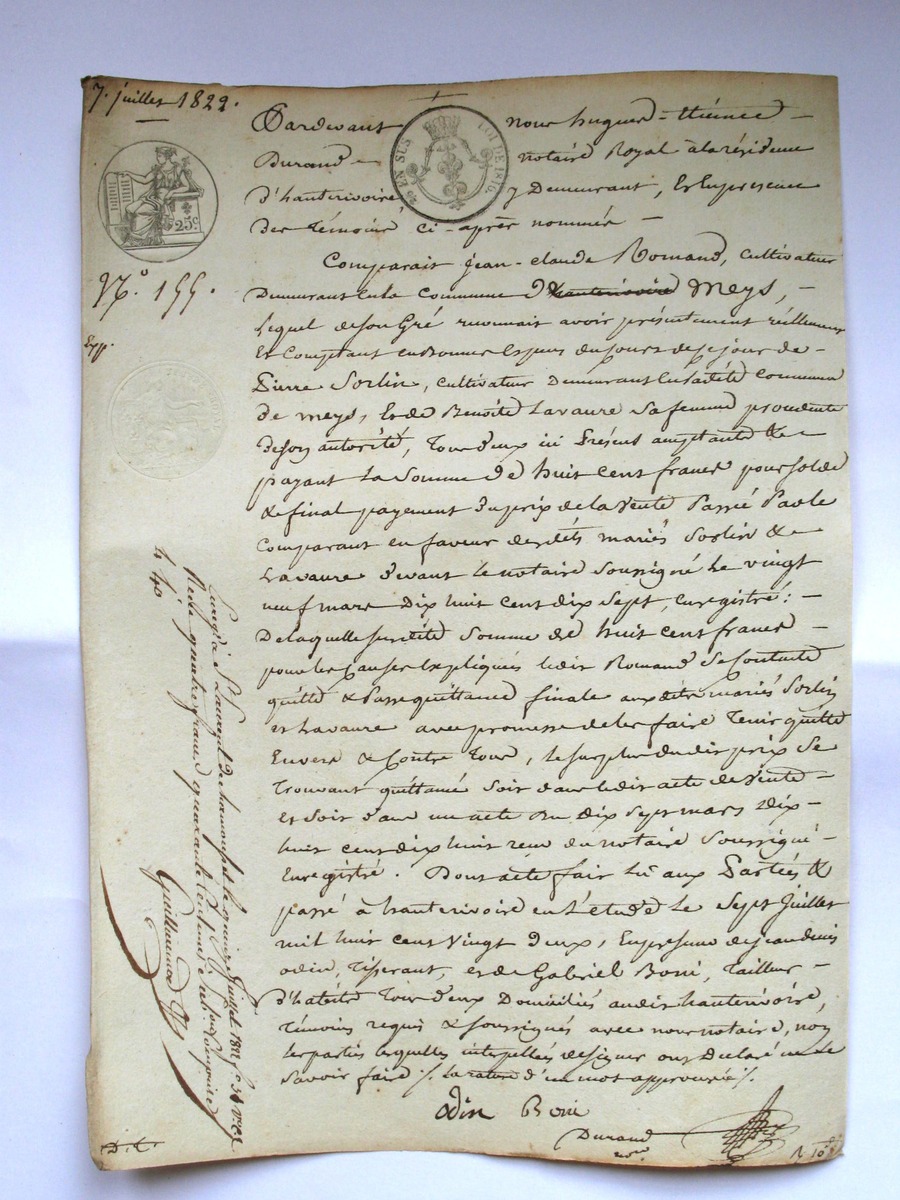 7. juillet 1822.
25c
EN SUS
LOI DE 1816.
N.° 155.
Exp.
Pardevant nous hugues-étienne
Durand notaire Royal à la résidence
d'hauterivoire y demeurant, et en presence
des témoins ci-après nommés
Comparait jean-claude Romand, cultivateur
demeurant en la commune d'hauterivoire Meys,
lequel de son Gré reconnait avoir présentement réellement
et comptant en bonnes espèces du jours de ce jour de
Pierre Sorlin, cultivateur demeurant en la dité commune
de meys, et de Benoîte Lavaure sa femme procedente
de son autorité, tous deux ici présens acceptants &
payant la somme de huit cent francs pour solde
& final payement du prix de la Vente Passé Par le
comparant en faveur desdits mariés Sorlin &
Lavaure devant le notaire soussigné le vingt
neuf mars dix huit cent dix sept, enregistré :
de laquelle susdité somme de huit cent francs
pour les causes expliquées ledit Romand se contente
quitté & Passe quittance finale aux dits mariés Sorlin
et Lavaure avec promesse de les faire Tenir quitte
Envers & Contre Tous, le surplus du dit prix se
Trouvant quittancé soit dans ledit acte de Vente
et soit dans un acte du dix sept mars dix
huit cent dix huit reçu du notaire soussigné
Enregistré. Dont acte fait lu aux Parties &
passé à hauterivoire en l'étude le sept juillet
mil huit cent vingt deux, En presence de jean denis
odin, Tisserant, et de Gabriel Boni, Tailleur
d'habits Tous deux Domiciliés audit hauterivoire,
témoins requis & soussignés avec nous notaire, non
les parties lesquelles interpellés de signer ont déclaré ne le
savoir faire ./. la rature d'un mot approuvée ./.
odin Boni
Durand
Enreg. à S. Laurent de chamousset le juillet 1822 f.
Reçu quatre francs quarante centimes
4 f. 40
Guillaume
D.C.